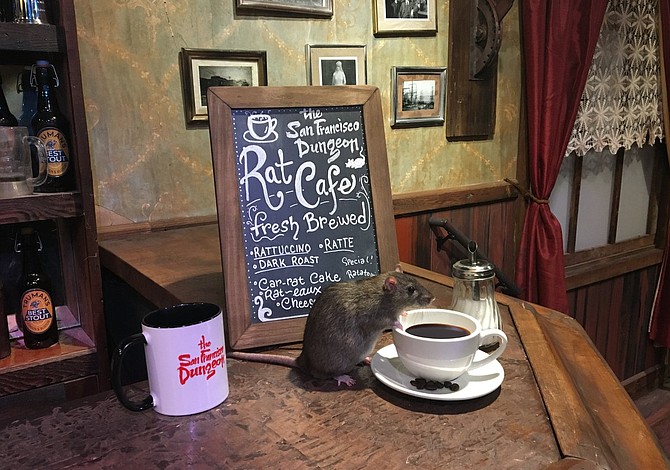 the
San Francisco
Dungeon
Rat
Cafe
fresh Brewed
• RATTUCCINO • RATTE
• DARK ROAST
Special!
Car-rat Cake
Rat-eaux
• Cheese
the
San Francisco
Dungeon
BEST
STOUT
TRUMANS
BEST
STOUT